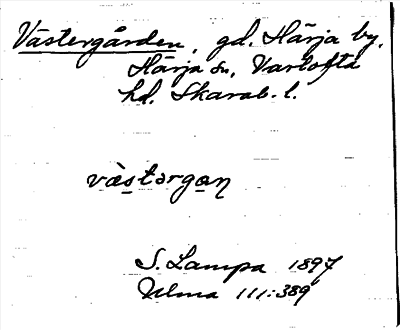 Västergården, gd. Härja by,
Härja sn, Vartofta
hd. Skarab. l.
væ̀stərgɑn
S. Lampa 1897
Ulma 111:389